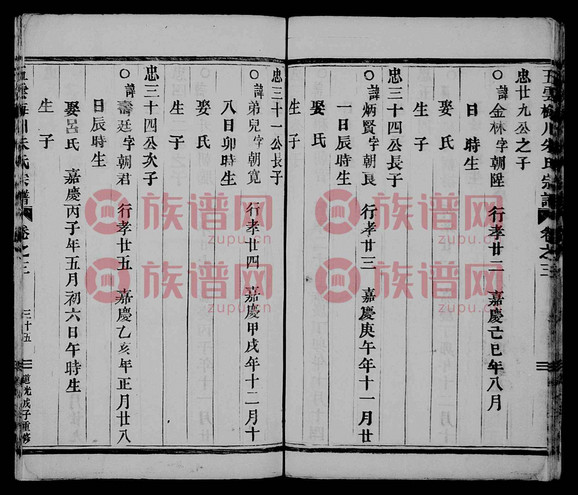 五雲梅川朱氏宗譜 卷之三
忠廿九公之子
○諱金林字朝陞 行孝廿二 嘉慶己巳年八月
娶氏
生子
忠三十四公長子
○諱炳賢字朝良 行孝廿三 嘉慶庚午年十一月廿
娶氏
生子
忠三十一公長子
○諱弟兒字朝寬 行孝廿四 嘉慶甲戌年十二月十
八日卯時生
娶氏
生子
忠三十四公次子
○諱壽廷字朝君 行孝廿五 嘉慶乙亥年正月廿八
日辰時生
娶呂氏 嘉慶丙子年五月初六日午時生
生子
五雲梅川朱氏宗譜 卷之三 三十五 道光戊子重修
族谱网
zupu.cn
族谱网
zupu.cn
族谱网
zupu.cn
族谱网
zupu.cn